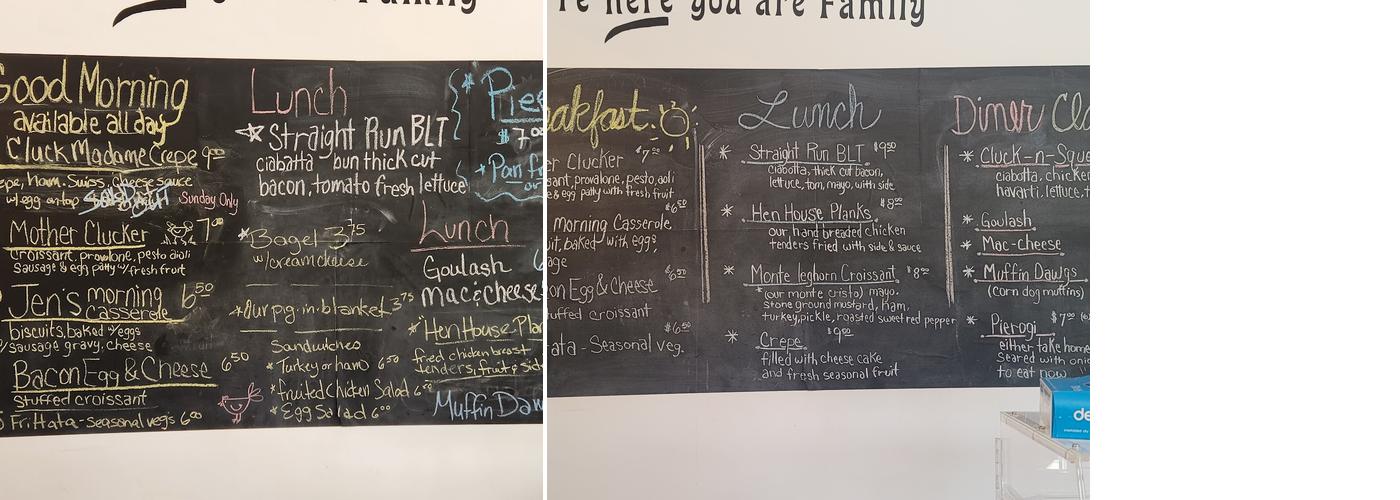 Family
Good Morning
available all day
Cluck Madame Crepe 9⁰⁰
Ham. Swiss. Cheese sauce
w/egg on top
Sunday Only
Mother Clucker 7⁰⁰
Croissant, provolone, pesto aioli
Sausage & egg patty w/fresh fruit
Jen's morning casserole 6⁵⁰
biscuits, baked w/eggs
sausage gravy, cheese
Bacon Egg & Cheese 6⁵⁰
stuffed croissant
Frittata-seasonal veg's 6⁰⁰
Lunch
Straight Run BLT
ciabatta bun thick cut
bacon, tomato fresh lettuce
* Bagel 3⁷⁵
w/creamcheese
* Our pig-in-blanket 3⁷⁵
Sandwiches
* Turkey or ham 6⁵⁰
* fruited Chicken Salad
* Egg Salad 6⁰⁰
Lunch
Goulash
mac & cheese
* "Hen House Pla
fried chicken breast
tenders, fruit & sid
Muffin Daw
* Pie
$ 7⁰⁰
* Pan f
or
re here you are Family
akfast.
er Clucker $7⁰⁰
sant, provalone, pesto, aoli
e & egg patty with fresh fruit
morning Casserole, $6⁵⁰
uit, baked with eggs,
age
on Egg & Cheese $6⁵⁰
tuffed croissant
ata - Seasonal veg. $6⁵⁰
Lunch
* Straight Run BLT $9⁵⁰
ciabatta, thick cut bacon,
lettuce, tom, mayo, with side
* Hen House Planks $8⁰⁰
our hand breaded chicken
tenders fried with side & sauce
* Monte leghorn Croissant $8⁰⁰
*(our monte cristo) mayo,
stone ground mustard, ham,
turkey, pickle, roasted sweet red pepper
* Crepe $9⁰⁰
filled with cheese cake
and fresh seasonal fruit
Diner Cla
* Cluck-n-Sque
ciabatta, chicke
havarti, lettuce, t
* Goulash
* Mac-cheese
* Muffin Dawgs
(corn dog muffins)
* Pierogi $7⁰⁰
either take home
Seared with oni
to eat now
de